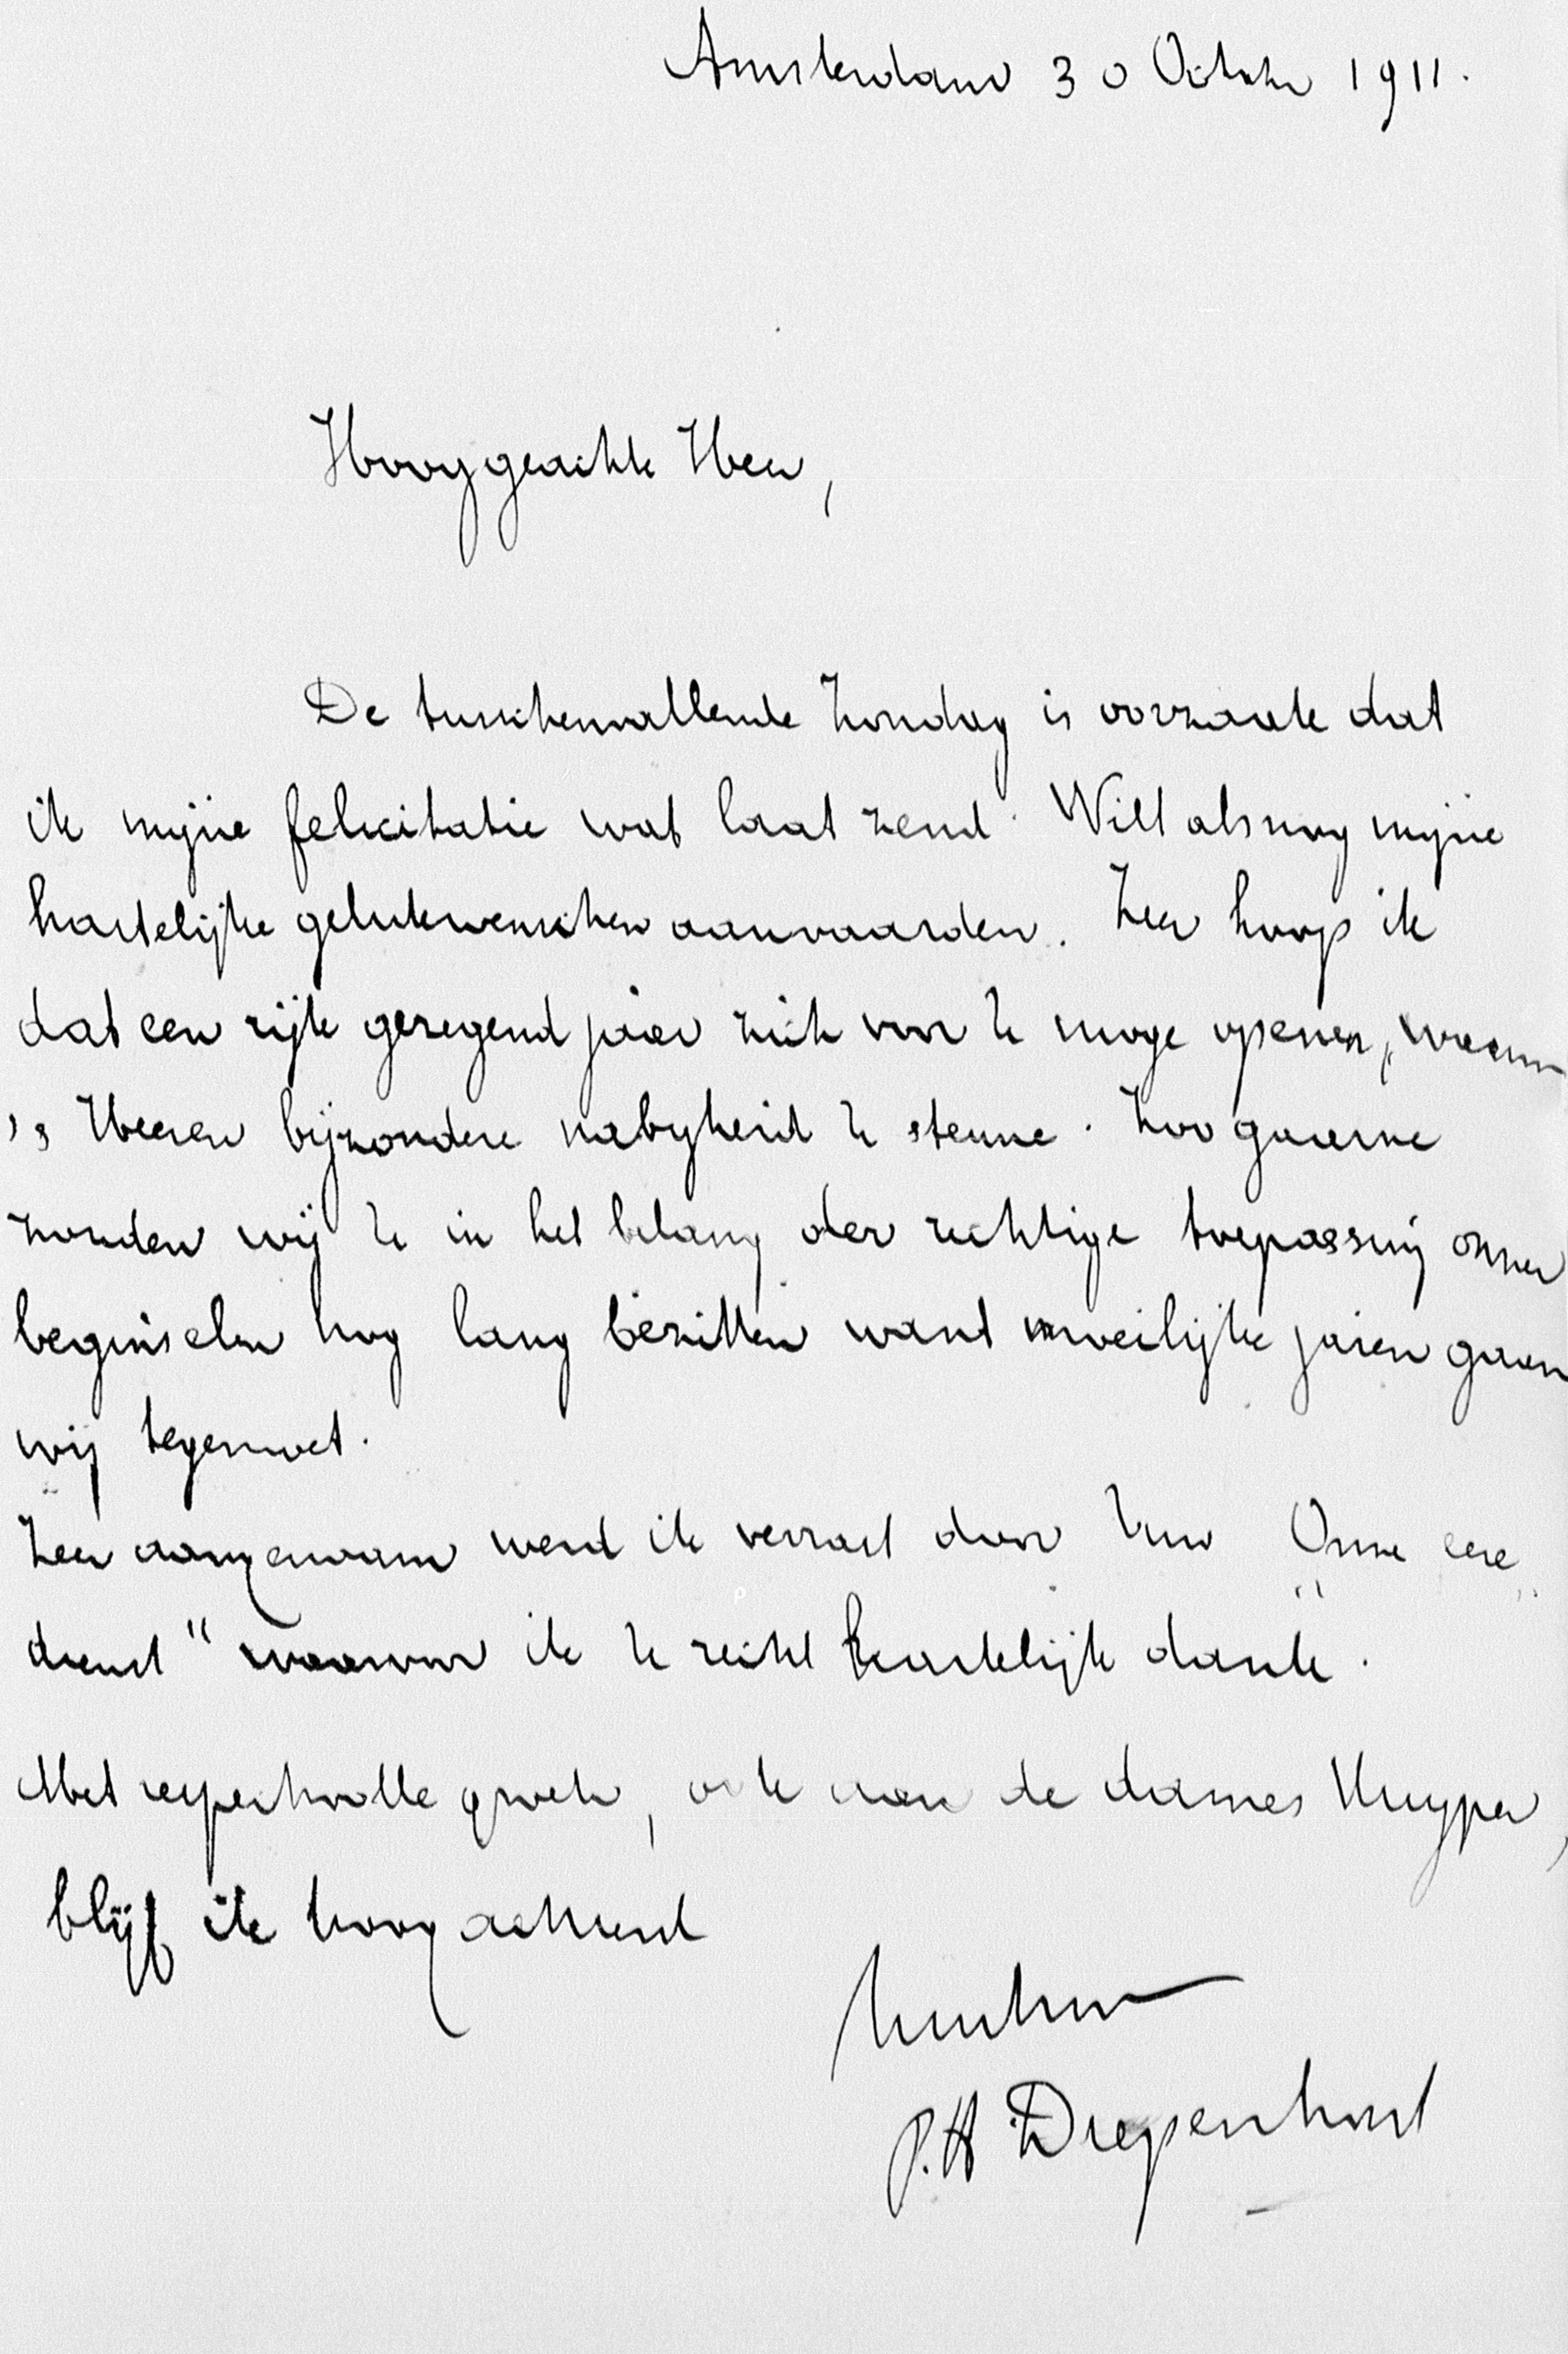 Amsterdam 30 October 1911.
Hooggeachte Heer,
De tusschenvallende Zondag is oorzaak dat
ik mijne felicitatie wat laat zend. Wilt alsnog mijne
hartelijke gelukwenschen aanvaarden. Zeer hoop ik
dat een rijk gezegend jaar zich voor U moge openen, waarin
's Heeren bijzondere nabijheid U steune. Zoo gaarne
zouden wij U in het belang der richtige toepassing onzer
beginselen nog lang bezitten want moeilijke jaren gaan
wij tegemoet.
Zeer aangenaam werd ik verrast door Uw „Onze eere
dienst" waarvoor ik U recht hartelijk dank.
Met respectvolle groeten, ook aan de dames Kuyper,
blijf ik hoogachtend
P.A. Diepenhorst